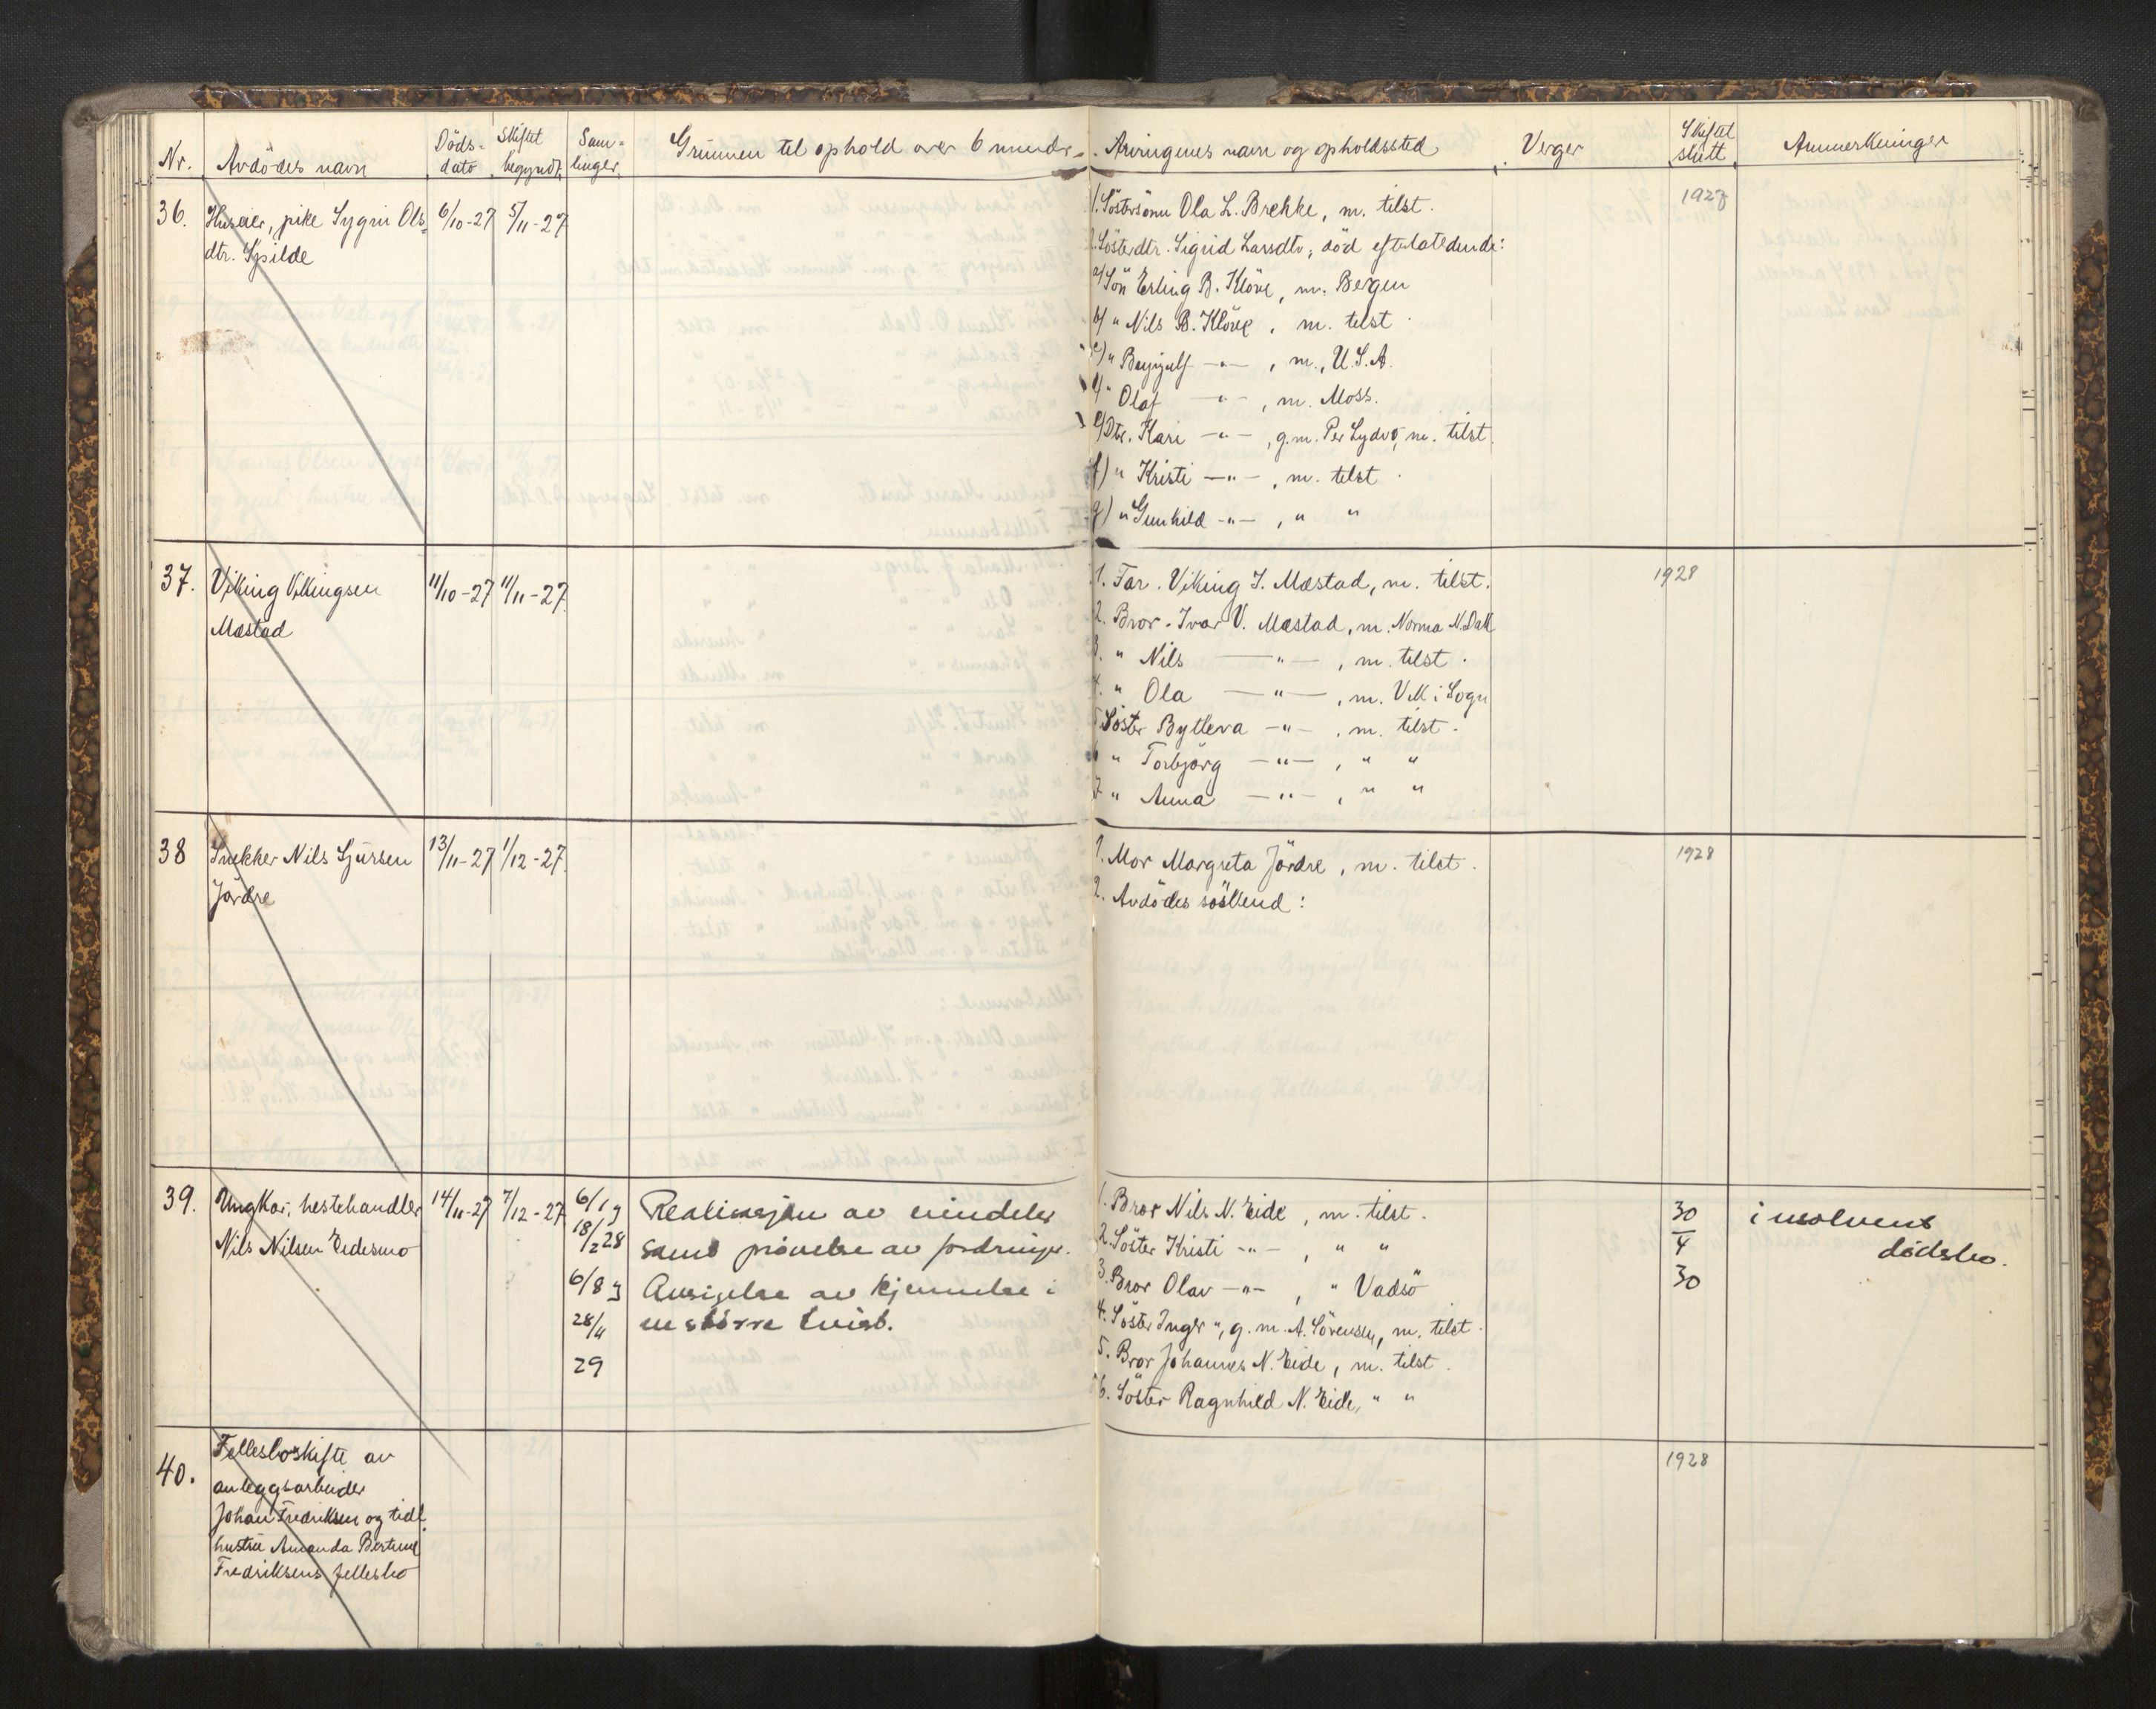 Nr. Avdödes navn Döds- dato Skiftet begyndt Sam- linger Grunnen til ophold over 6 mndr. Arvingenes navn og opholdssted Verger Skiftet slutt Anmerkninger
36. Huseier, pike Sygni Ols- 6/10-27 5/11-27
dtr. Spilde
1. Söstersönn Ola L. Brekke, m. tilst.
2. Sösterdtr. Sigrid Larsdtr, död efterlatende:
a) Sön Erling B. Klöve, m. Bergen
b) " Nils B. Klöve, m. tilst.
c) " Brynjulf —"—, m. U.S.A.
d) " Olaf —"—, m. Moss.
e) Dtr. Kari —"—, g.m. Per Lydvo, m. tilst.
f) " Kristi —"—, m. tilst.
g) " Gunhild —"—, " "
1927
37. Viking Vikingsen 11/10-27 11/11-27
Mæstad
1. Far. Viking I. Mæstad, m. tilst.
2. Bror. Ivar V. Mæstad, m. Norma N.Dak
3. " Nils —"—, m. tilst.
4. " Ola —"—, m. Vik i Sogn
5. Söster Bytleva —"—, m. tilst.
6 " Torbjörg —"—, " "
7 " Anna —"—, " "
1928
38 Snekker Nils Sjursen 13/11-27 1/12-27
Jördre
1. Mor Margreta Jördre, m. tilst.
2. Avdödes söskend:
1928
39. Ungkar, hestehandler 14/11-27 7/12-27
Nils Nilsen Eidesmo
6/1 og
18/2 28
6/8 og
28/11
29
Realisasjon av eiendeler
samt prövelse av fordringer.
Avsigelse av kjennelse i
en större tvist.
1. Bror Nils N. Eide, m. tilst.
2. Söster Kristi —"—, " "
3. Bror Olav —"—, " Vadsö
4. Söster Inger ", g.m. A. Sörensen, m. tilst.
5. Bror Johannes N. Eide, m. tilst.
6. Söster Ragnhild N. Eide, " "
30
4
30
insolvent
dödsbo.
40. Felleshoskifte av
anleggsarbeider
Johan Fredriksen og tidl.
hustru Amanda
Fredriksens fellesbo
1928